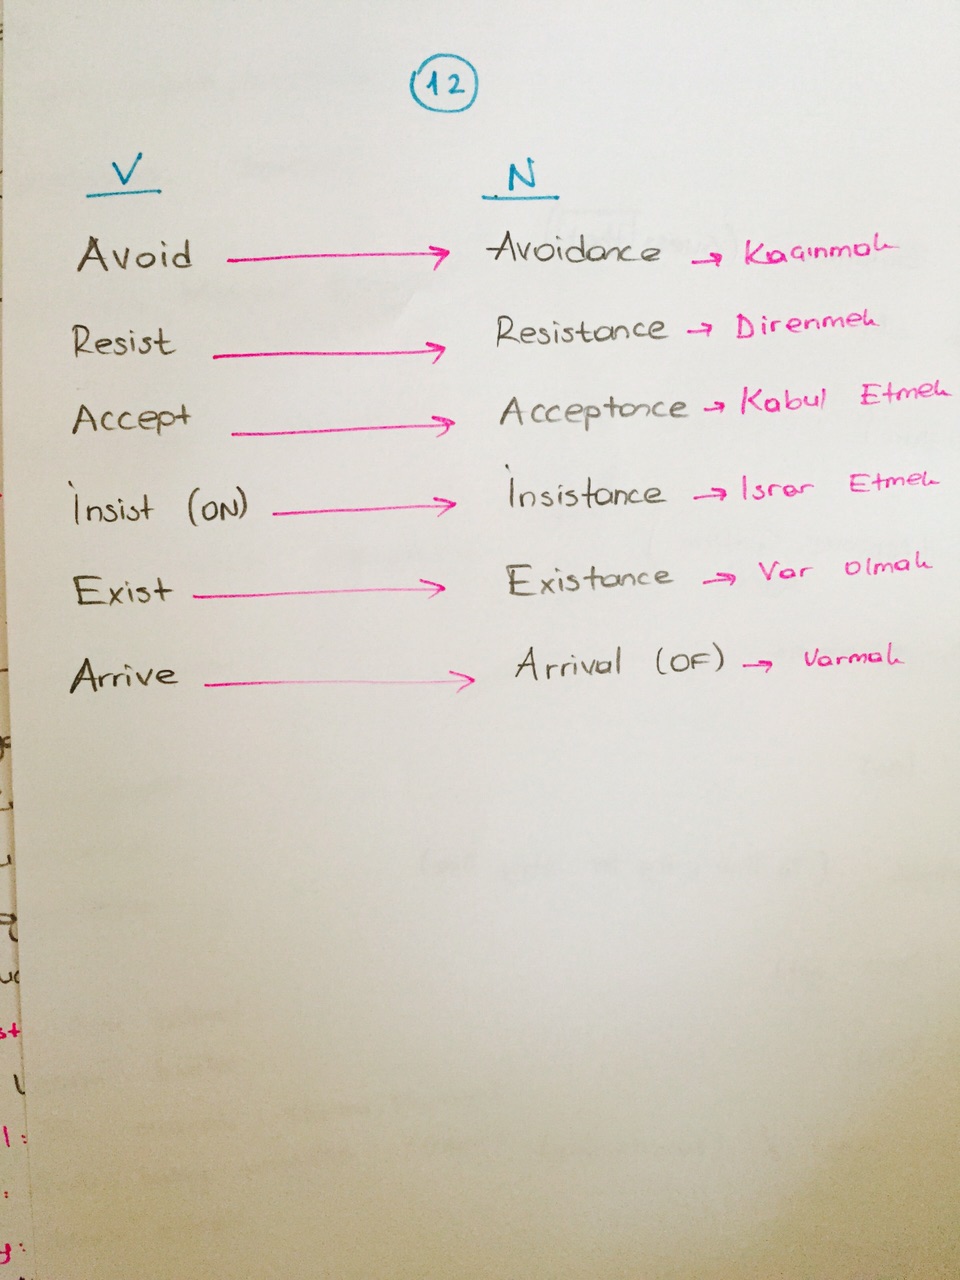 12
V N
Avoid → Avoidance → Kaçınmak
Resist → Resistance → Direnmek
Accept → Acceptance → Kabul Etmek
İnsist (ON) → İnsistance → Israr Etmek
Exist → Existance → Var olmak
Arrive → Arrival (OF) → Varmak